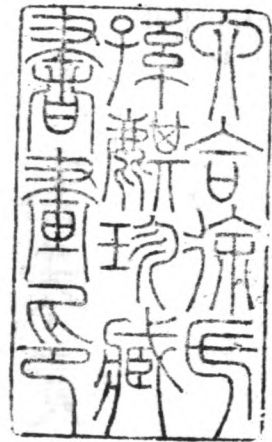 六合徐氏
孫麒珍藏
書畫印